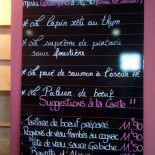 menu Gourmand à
* Le lapin rôti au thym
* Le suprême de pintade
sauce forestière
* Le pavé de saumon à l'oseille
* Le Paleron de boeuf
Suggestions à la Carte !!
Tartare de boeuf préparé 11,90
Rognons de veau flambés au cognac 11,90
Tête de veau Sauce Gribiche 11,50
Bavette d'